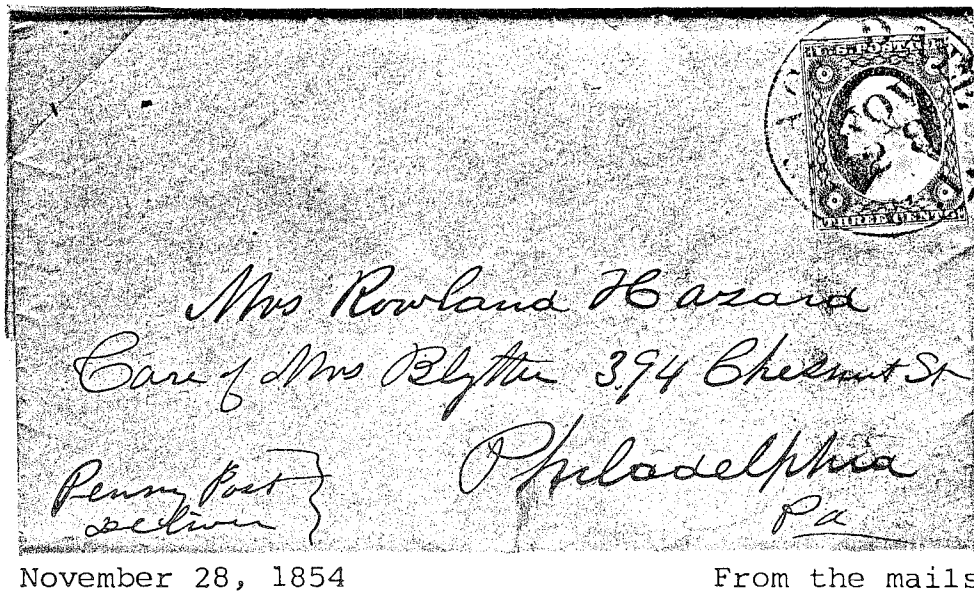 U.S. POSTAGE
NOV
28
THREE CENTS
Mrs Rowland Hazard
Care of Mrs Blythe 394 Chesnut St
Philadelphia
Pa
Penny Post
deliver
November 28, 1854
From the mails